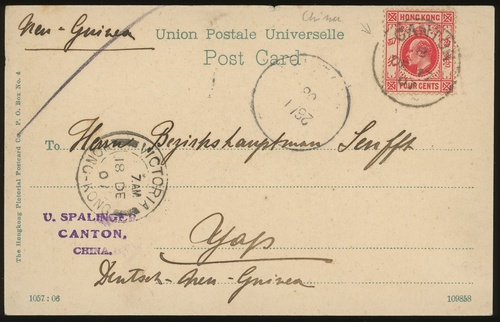 China
Neu-Guinea
Union Postale Universelle
Post Card
HONG KONG
FOUR CENTS
CANTON
To Herrn Bezirkshauptmann Senfft
VICTORIA
7 AM
18 DE
07
HONG-KONG
U. SPALINGER
CANTON,
CHINA.
Yap
Deutsch-Neu-Guinea
The Hongkong Pictorial Postcard Co., P. O. Box No. 4
1057:06
109858